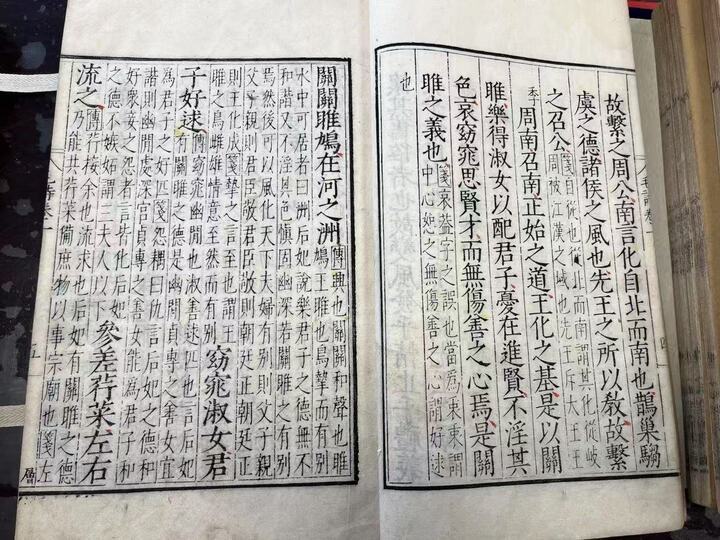 故繫之周公南言化自北而南也鵲巢騶
虞之德諸侯之風也先王之所以教故繫
之召公箋自從也從北而南謂其化從岐
周被江漢之域也先王斥大王王
季周南召南正始之道王化之基是以關
雎樂得淑女以配君子憂在進賢不淫其
色哀窈窕思賢才而無傷善之心焉是關
雎之義也箋哀蓋字之誤也當爲衷衷謂
中心恕之無傷善之心謂好逑
也
四
關關雎鳩在河之洲傳興也關關和聲也雎
鳩王雎也鳥摯而有別
水中可居者曰洲后妃說樂君子之德無不
和諧又不淫其色慎固幽深若關雎之有別
焉然後可以風化天下夫婦有別則父子親
父子親則君臣敬君臣敬則朝廷正朝廷正
則王化成箋摯之言至也謂王
雎之鳥雌雄情意至然而有別
窈窕淑女君
子好逑傳窈窕幽閒也淑善逑匹也言后妃
有關雎之德是幽閒貞專之善女宜
為君子之好匹箋怨耦曰仇言后妃之德和
諧則幽閒處深宮貞專之善女能為君子和
好衆妾之怨者言皆化后妃
之德不嫉妬謂三夫人以下
參差荇菜左右
流之傳荇接余也流求也后妃有關雎之德
乃能共荇菜備庶物以事宗廟也箋左
五